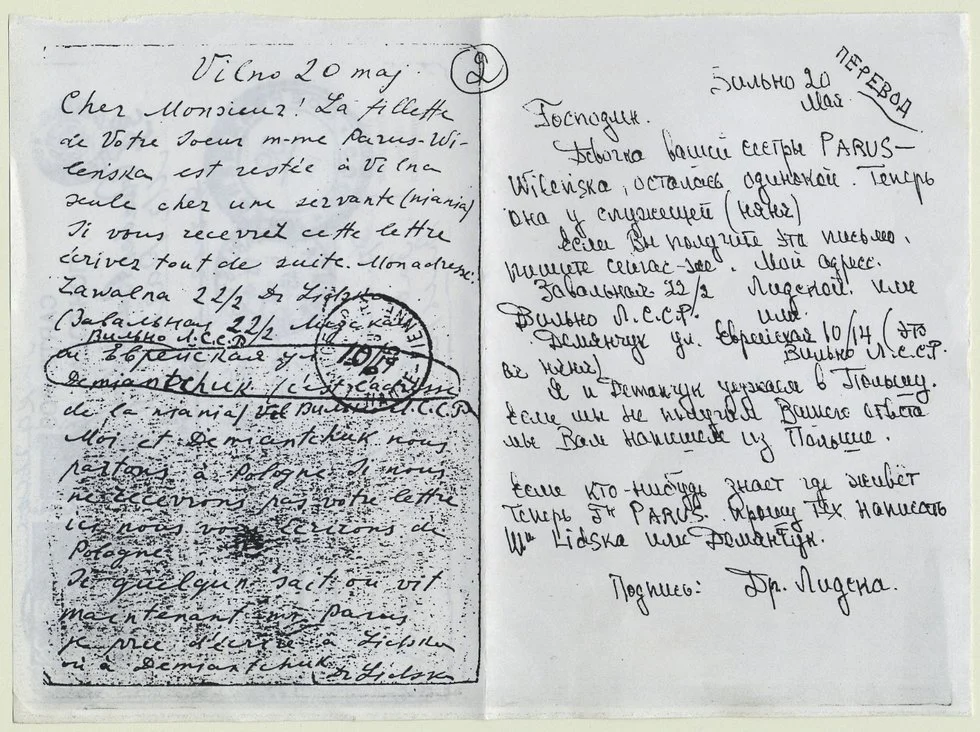 Vilno 20 maj.
2
Cher Monsieur! La fillette
de Votre Soeur m-me Parus-Wi-
leńska est restée à Vilna
seule cher une servante (niania)
Si vous recevrez cette lettre
écrivez tout de suite. Mon adresse:
Zawalna 22/2 Dr Lidska
(Завальная 22/2 Лидская
Вильно Л.С.С.Р.
ou Еврейская ул 10/14
Demiantchuk (c'est l'adresse
de la niania) Вильно Л.С.С.Р
Moi et Demiantchuk nous
partons à Pologne Si nous
ne recevrons pas votre lettre
ici nous vous écrirons de
Pologne
Si quelqun sait ou vit
maintenant mr Parus
je prie d'écrire à Lidska
ou à Demiantchuk
Dr Lidska
ПЕРЕВОД
Вильно 20
Мая.
Господин.
Девочка вашей сестры PARUS-
Wileńska, осталась одинокой. Теперь
она у служащей (няня)
Если Вы получите это письмо,
пишите сейчас-же. Мой адрес.
Завальная 22/2 Лидской. или
Вильно Л.С.С.Р. или.
Демянчук ул. Еврейская 10/14 (это
её няня) Вильно Л.С.С.Р.
Я и Деманчук уезжаем в Польшу.
Если мы не получим Вашего ответа
мы Вам напишем из Польши.
Если кто-нибудь знает где живёт
теперь Гн PARUS. Прошу тех написать
Lidska или Деманчук.
Подпись: Др. Лидска.